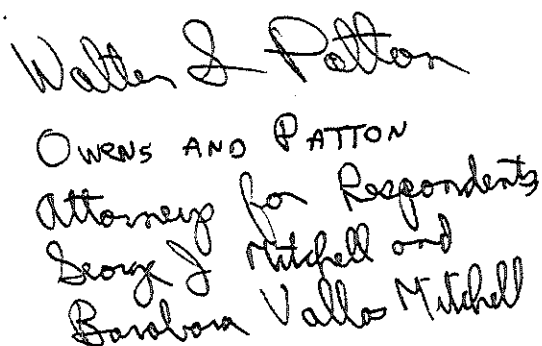 Walter S Patton
OWENS AND PATTON
Attorneys for Respondents
George J Mitchell and
Barabara Vallas Mitchell